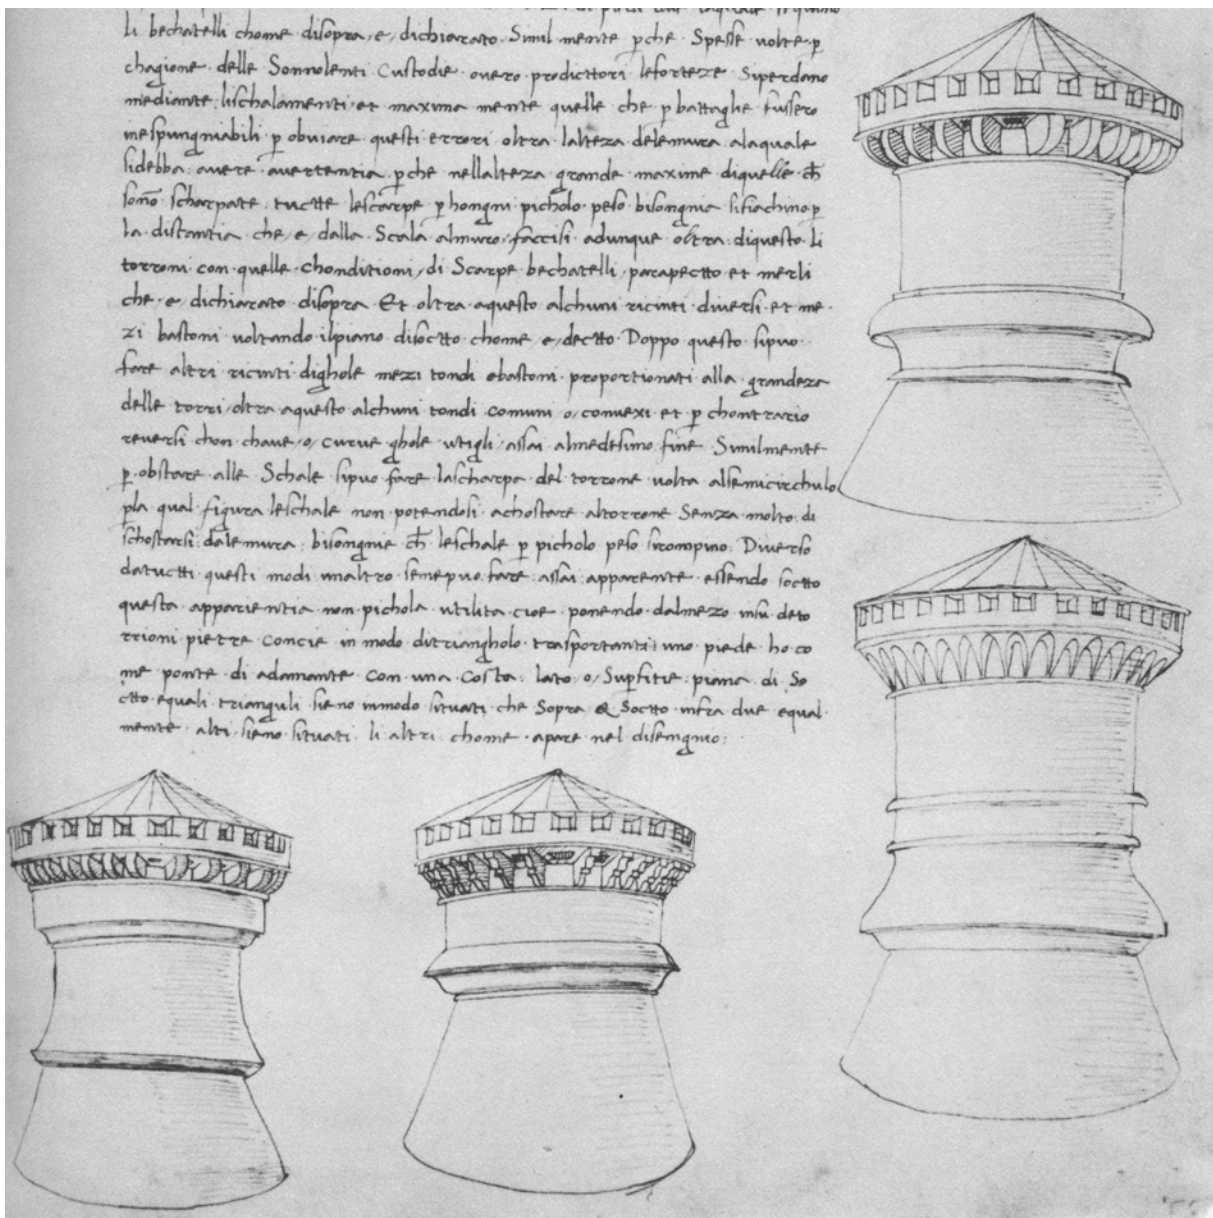 li bechatelli chome disopra, e, dichiarato. Simil mente p che. Spesse volte. p
chagione. delle Sonnolenti Custodie overo prodictori leforteze Siperdano
mediante. lischalamenti. et maxima mente quelle che p battaglie fussero
inespungniabili p obviare questi errori oltra lalteza delemura alaquale
sidebba. avere avertentia p che nellalteza grande maxime diquelle. ch̄
sono scharpate. tuctte lescarpe p hongni picholo peso bisongnia sifiachino p
la. distantia che, e, dalla Scala almuro. faccisi adunque oltra. diquesto. li
torroni con quelle Chonditioni, di Scarpe bechatelli, parapectto et merli
che. e dichiarato disopra Et oltra aquesto alchuni ricinti diversi. et me.
zi bastoni voltando ilpiano disoctto chome, e, dectto. Doppo questo sipuo.
fare altri ricinti dighole mezi tondi obastoni. proportionati alla grandeza
delle torri, oltra aquesto alchuni tondi comuni, o, convexi et p chontrario
reversi chon chave, o, curve ghole utigli, assai almedesimo fine Similmente
p. obstare alle Schale sipuo fare lascharpa del torrone volta alsemicirchulo
pla qual figura leschale non potendosi achostare altorrone Senza molto. di
schostarsi. dalemura. bisongnie ch̄ leschale p picholo peso sirompino. Diverso
datuctti questi modi unaltro senepuo. fare. assai apparente essendo soctto
questa apparientia non pichola utilita cioe ponendo dalmezo insu deto
rrioni pietre Concie in modo ditriangholo trasportanti, uno piede ho co
me ponte di adamante Con una Costa. lato, o, Supfitie. piana. di So
ctto equali. trianguli sieno inmodo situati che Sopra & Soctto infra due equal.
mente alti. sieno. situati. li altri chome. apare nel disengnio: